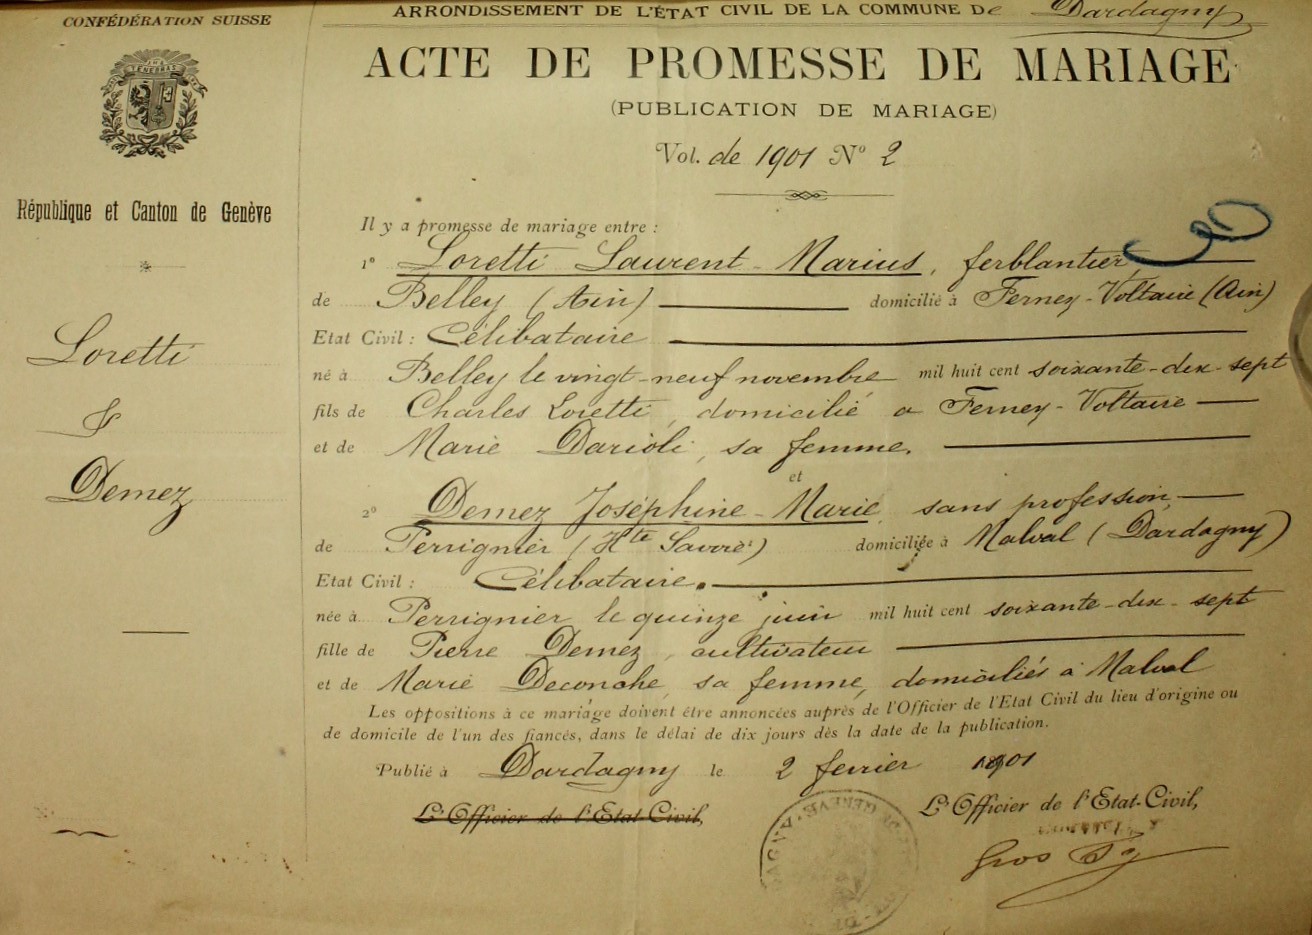 CONFÉDÉRATION SUISSE
République et Canton de Genève
Loretti
&
Demez
ARRONDISSEMENT DE L'ÉTAT CIVIL DE LA COMMUNE De Dardagny
ACTE DE PROMESSE DE MARIAGE
(PUBLICATION DE MARIAGE)
Vol. de 1901 Nº 2
Il y a promesse de mariage entre :
1º Loretti Laurent-Marius, ferblantier,
de Belley (Ain) domicilié à Ferney-Voltaire (Ain)
Etat Civil : Célibataire
né à Belley le vingt-neuf novembre mil huit cent soixante-dix-sept
fils de Charles Loretti, domicilié à Ferney-Voltaire
et de Marie Darioli, sa femme.
et
2º Demez Joséphine-Marie, sans profession,
de Perrignier (Hte Savoie) domiciliée à Malval (Dardagny)
Etat Civil : Célibataire.
née à Perrignier le quinze juin mil huit cent soixante-dix-sept
fille de Pierre Demez, cultivateur
et de Marie Deconche, sa femme, domiciliés à Malval
Les oppositions à ce mariage doivent être annoncées auprès de l'Officier de l'Etat Civil du lieu d'origine ou
de domicile de l'un des fiancés, dans le délai de dix jours dès la date de la publication.
Publié à Dardagny le 2 fevrier 1901
L'Officier de l'Etat-Civil,
L'Officier de l'Etat-Civil,
Gros